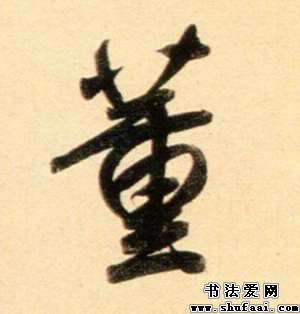 董
书法爱网
www.shufaai.com